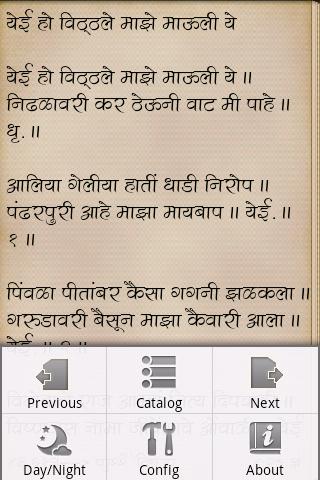 येई हो विठ्ठले माझे माऊली ये
येई हो विठ्ठले माझे माऊली ये ॥
निढळावरी कर ठेऊनी वाट मी पाहे ॥
धृ. ॥
आलिया गेलीया हातीं धाडी निरोप ॥
पंढरपुरी आहे माझा मायबाप ॥ येई. ॥
१ ॥
पिंवळा पीतांबर कैसा गगनी झळकला ॥
गरुडावरी बैसून माझा कैवारी आला ॥
येई. ॥
Previous
Catalog
Next
Day/Night
Config
About